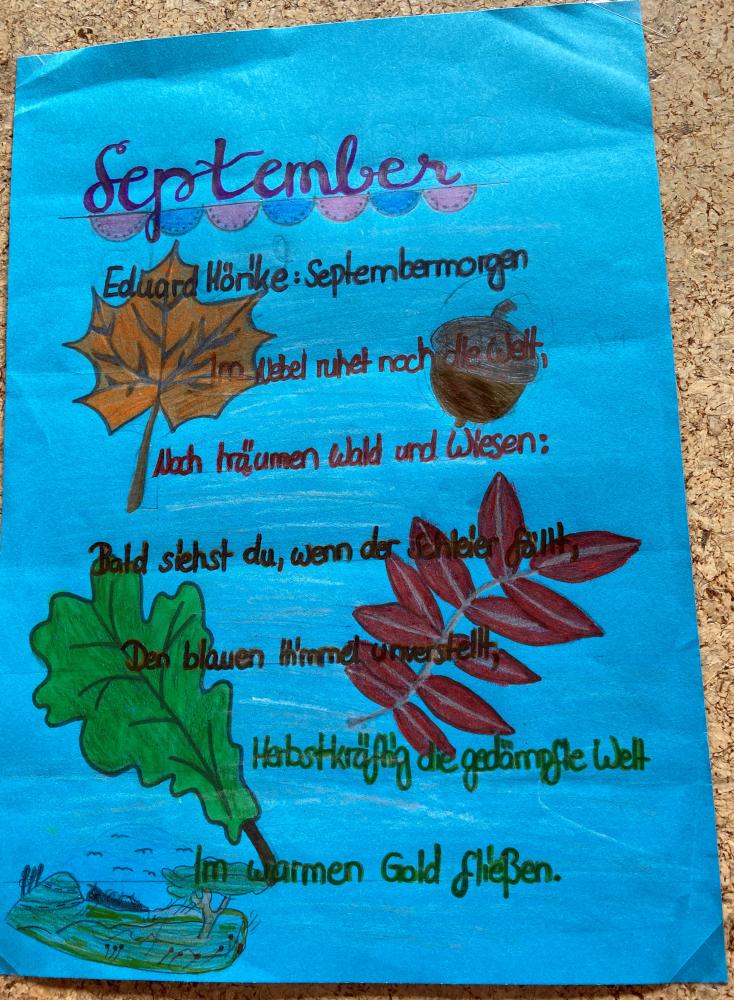 September
Eduard Mörike: Septembermorgen
Im Nebel ruhet noch die Welt,
Noch träumen Wald und Wiesen:
Bald siehst du, wenn der Schleier fällt,
Den blauen Himmel unverstellt,
Herbstkräftig die gedämpfte Welt
Im warmen Gold fließen.